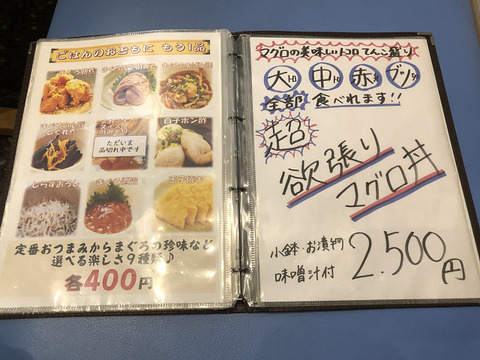 ごはんのおともに もう1品
ただいま
品切れ中です
白子ポン酢
しらすおろし
玉子焼き
定番おつまみからまぐろの珍味など
選べる楽しさ9種類♪
各400円
マグロの美味しいトコロ てんこ盛り
大トロ 中トロ 赤身 ブツ
全部 食べれます!!
超
欲張り
マグロ丼
小鉢・お漬物
味噌汁付
2,500円